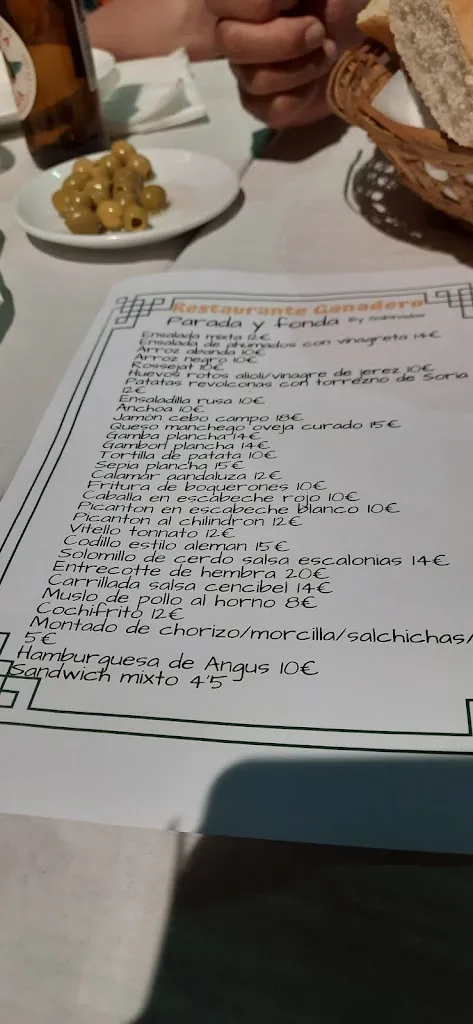 Restaurante Ganadero
Parada y fonda By
Ensalada mixta 12€
Ensalada de ahumados con vinagreta 14€
Arroz abanda 10€
Arroz negro 10€
Rossejat 10€
Huevos rotos alioli/vinagre de jerez 10€
Patatas revolconas con torrezno de Soria
12€
Ensaladilla rusa 10€
Anchoa 10€
Jamón cebo campo 18€
Queso manchego oveja curado 15€
Gamba plancha 14€
Gambon plancha 14€
Tortilla de patata 10€
Sepia plancha 15€
Calamar aandaluza 12€
Fritura de boquerones 10€
Caballa en escabeche rojo 10€
Picanton en escabeche blanco 10€
Picanton al chilindron 12€
Vitello tonnato 12€
Codillo estilo aleman 15€
Solomillo de cerdo salsa escalonias 14€
Entrecotte de hembra 20€
Carrillada salsa cencibel 14€
Muslo de pollo al horno 8€
Cochifrito 12€
Montado de chorizo/morcilla/salchichas/
5€
Hamburguesa de Angus 10€
Sandwich mixto 4'5